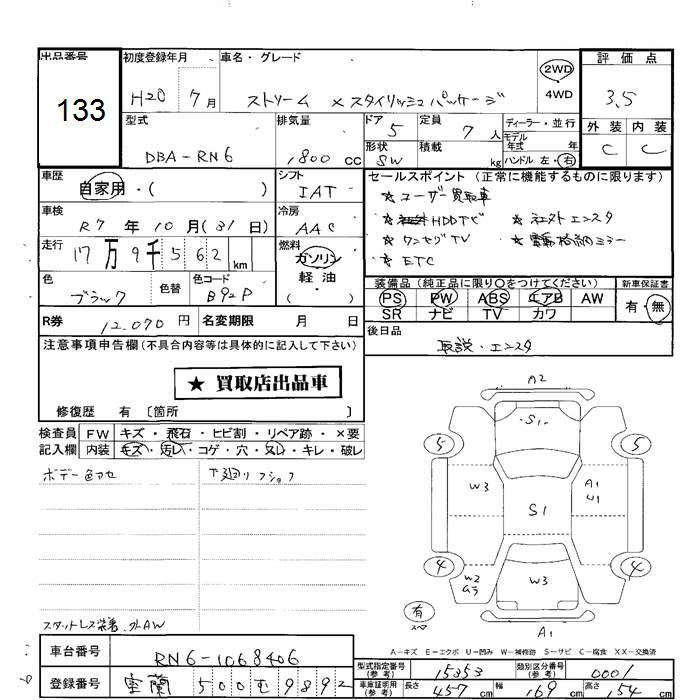 出品番号 初度登録年月 車名・グレード 評価点
133
H20 7月 ストリーム ×スタイリッシュパッケージ 2WD 4WD 3.5
外装 内装
C C
型式 排気量 ドア 5 定員 7人 ディーラー・並行
モデル年式 年
DBA-RN6 1800cc 形状 SW 積載 kg ハンドル 左・右
車歴 シフト セールスポイント (正常に機能するものに限ります)
自家用・( ) IAT
★ユーザー買取車
車検 冷房
R7年10月(31日) AAC
★HDDナビ ★社外エンスタ
走行 燃料
17万9千562km ガソリン・軽油・( )
★ワンセグTV ★電動格納ミラー
★ETC
色 色替 色コード
ブラック B92P
装備品 (純正品に限り○をつけてください) 新車保証書
PS PW ABS エアB AW 有・無
SR ナビ TV カワ
R券 12,070円 名変期限 月 日
後日品
取説・エンスタ
注意事項申告欄(不具合内容等は具体的に記入して下さい)
★ 買取店出品車
修復歴 有 [箇所 ]
検査員 FW キズ・飛石・ヒビ割・リペア跡・×要
記入欄 内装 キズ・汚レ・コゲ・穴・スレ・キレ・破レ
ボデー色アセ 下廻リフショク
スタットレス装着.外AW
A2
S1
5 5
W3 A1
U1
S1
4 4
W2 W3
有
スペア
A1
A-キズ E-エクボ U-凹み W-補修跡 S-サビ C-腐食 XX-交換済
車台番号 RN6-1068406
型式指定番号(参考) 15353 類別区分番号(参考) 0001
登録番号 室蘭 500 む 9892
車庫証明用(参考) 長さ 457cm 幅 169cm 高さ 154cm